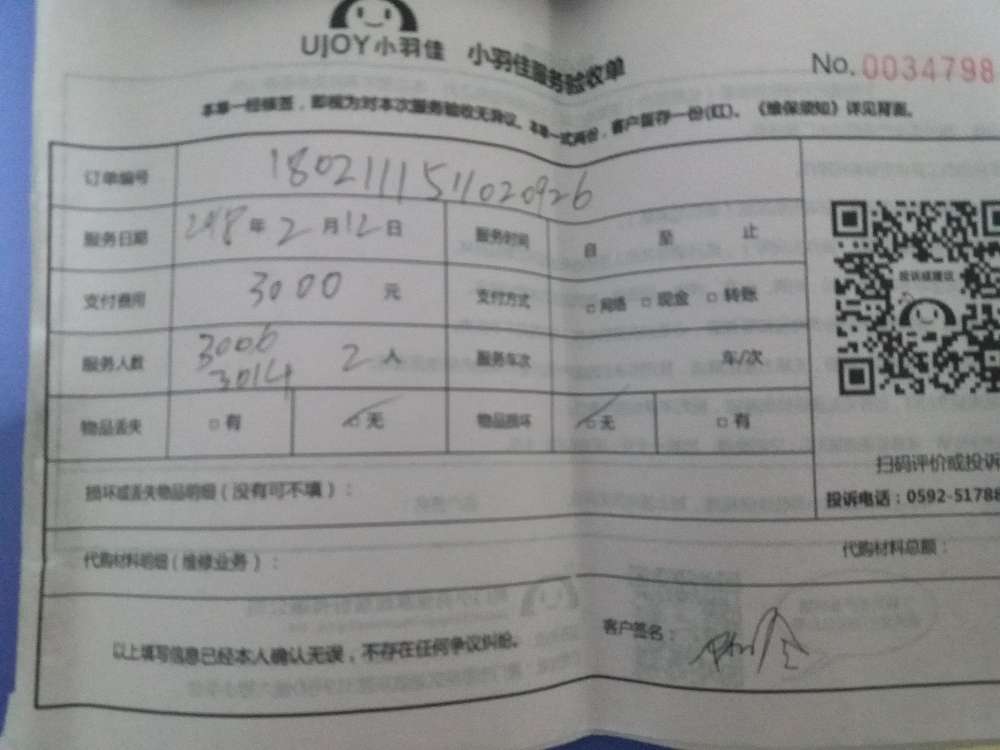 UJOY小羽佳 小羽佳服务验收单
No. 0034798
本单一经核签，即视为对本次服务验收无异议。本单一式两份，客户留存一份(红)。《维保须知》详见背面。
订单编号 1802111511020926
服务日期 2018年2月12日 服务时间 自 至 止
支付费用 3000 元 支付方式 □网络 □现金 □转账
投诉或建议
服务人数 3006 3014 2人 服务车次 车/次
物品丢失 □有 □无 物品损坏 □无 □有
扫码评价或投诉
损坏或丢失物品明细（没有可不填）：
投诉电话：0592-51788
代购材料明细（维修业务）： 代购材料总额：
以上填写信息已经本人确认无误，不存在任何争议纠纷。 客户签名：